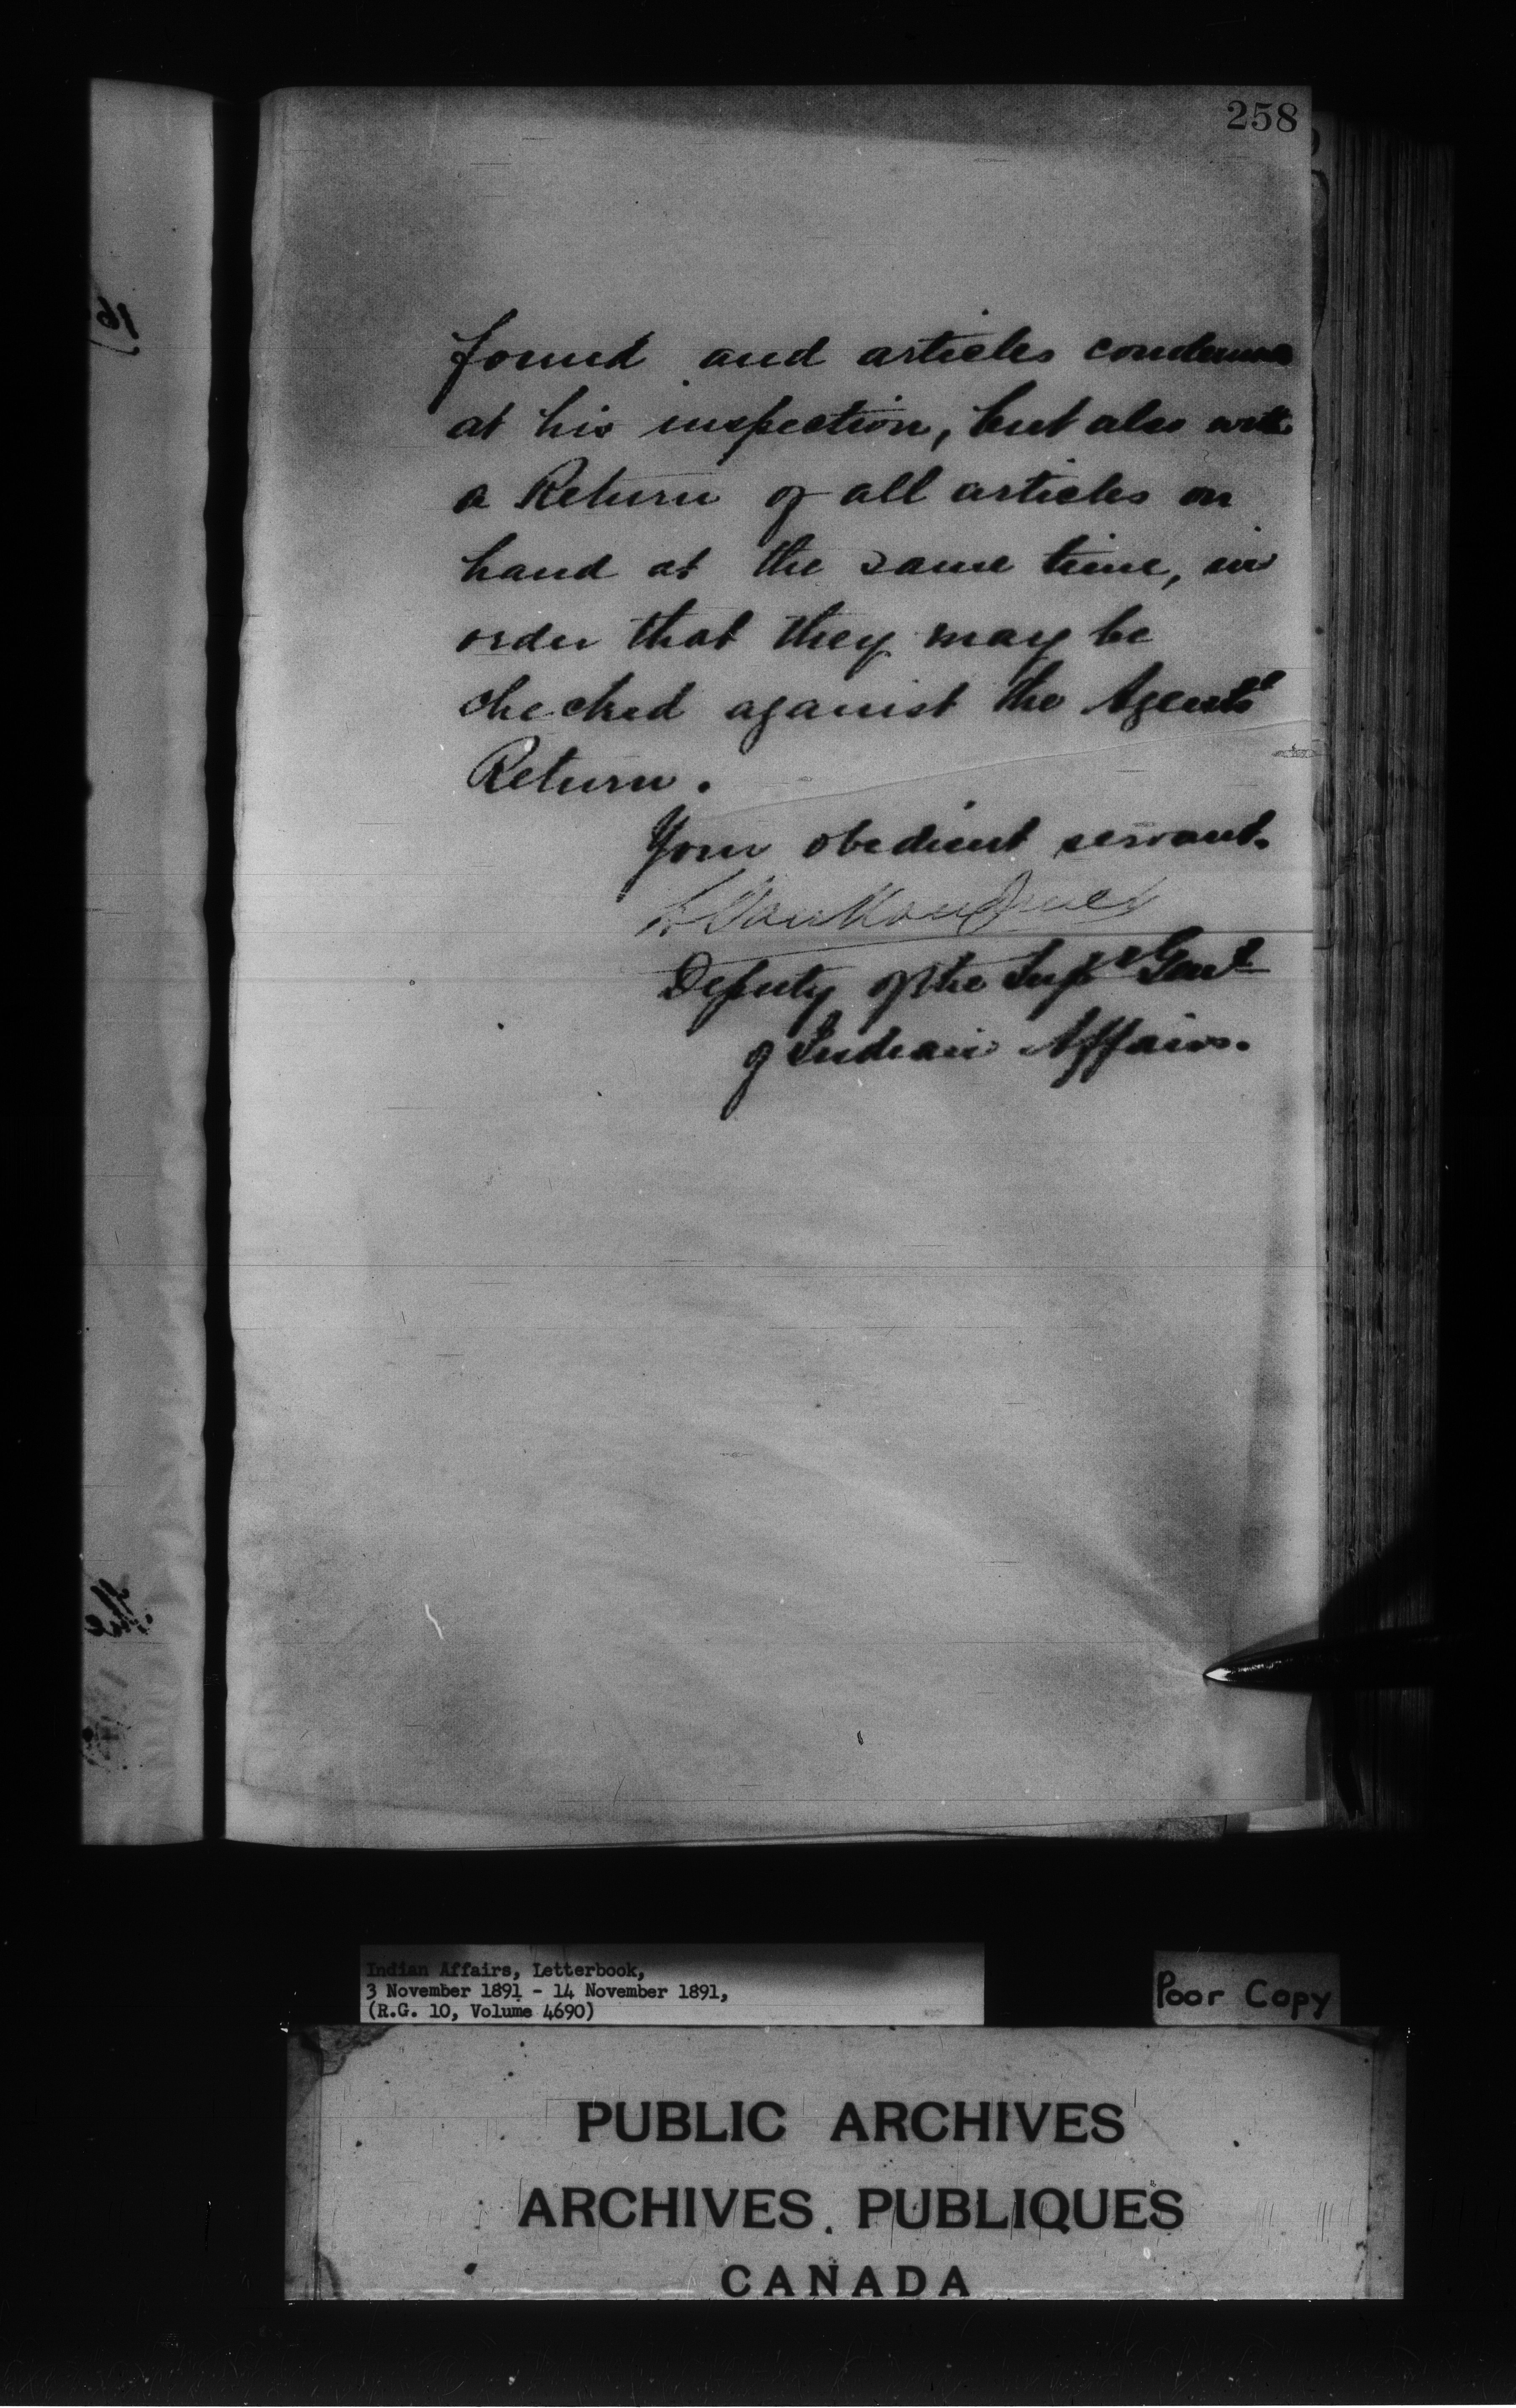 258
found and articles condemned
at his inspection, but also with
a Return of all articles on
hand at the same time, in
order that they may be
checked against the Agents'
Return.
Your obedient servant.
L. VanKoughnet
Deputy of the Supt Genl
of Indian Affairs.
Indian Affairs, Letterbook,
3 November 1891 - 14 November 1891,
(R.G. 10, Volume 4690)
Poor Copy
PUBLIC ARCHIVES
ARCHIVES PUBLIQUES
CANADA